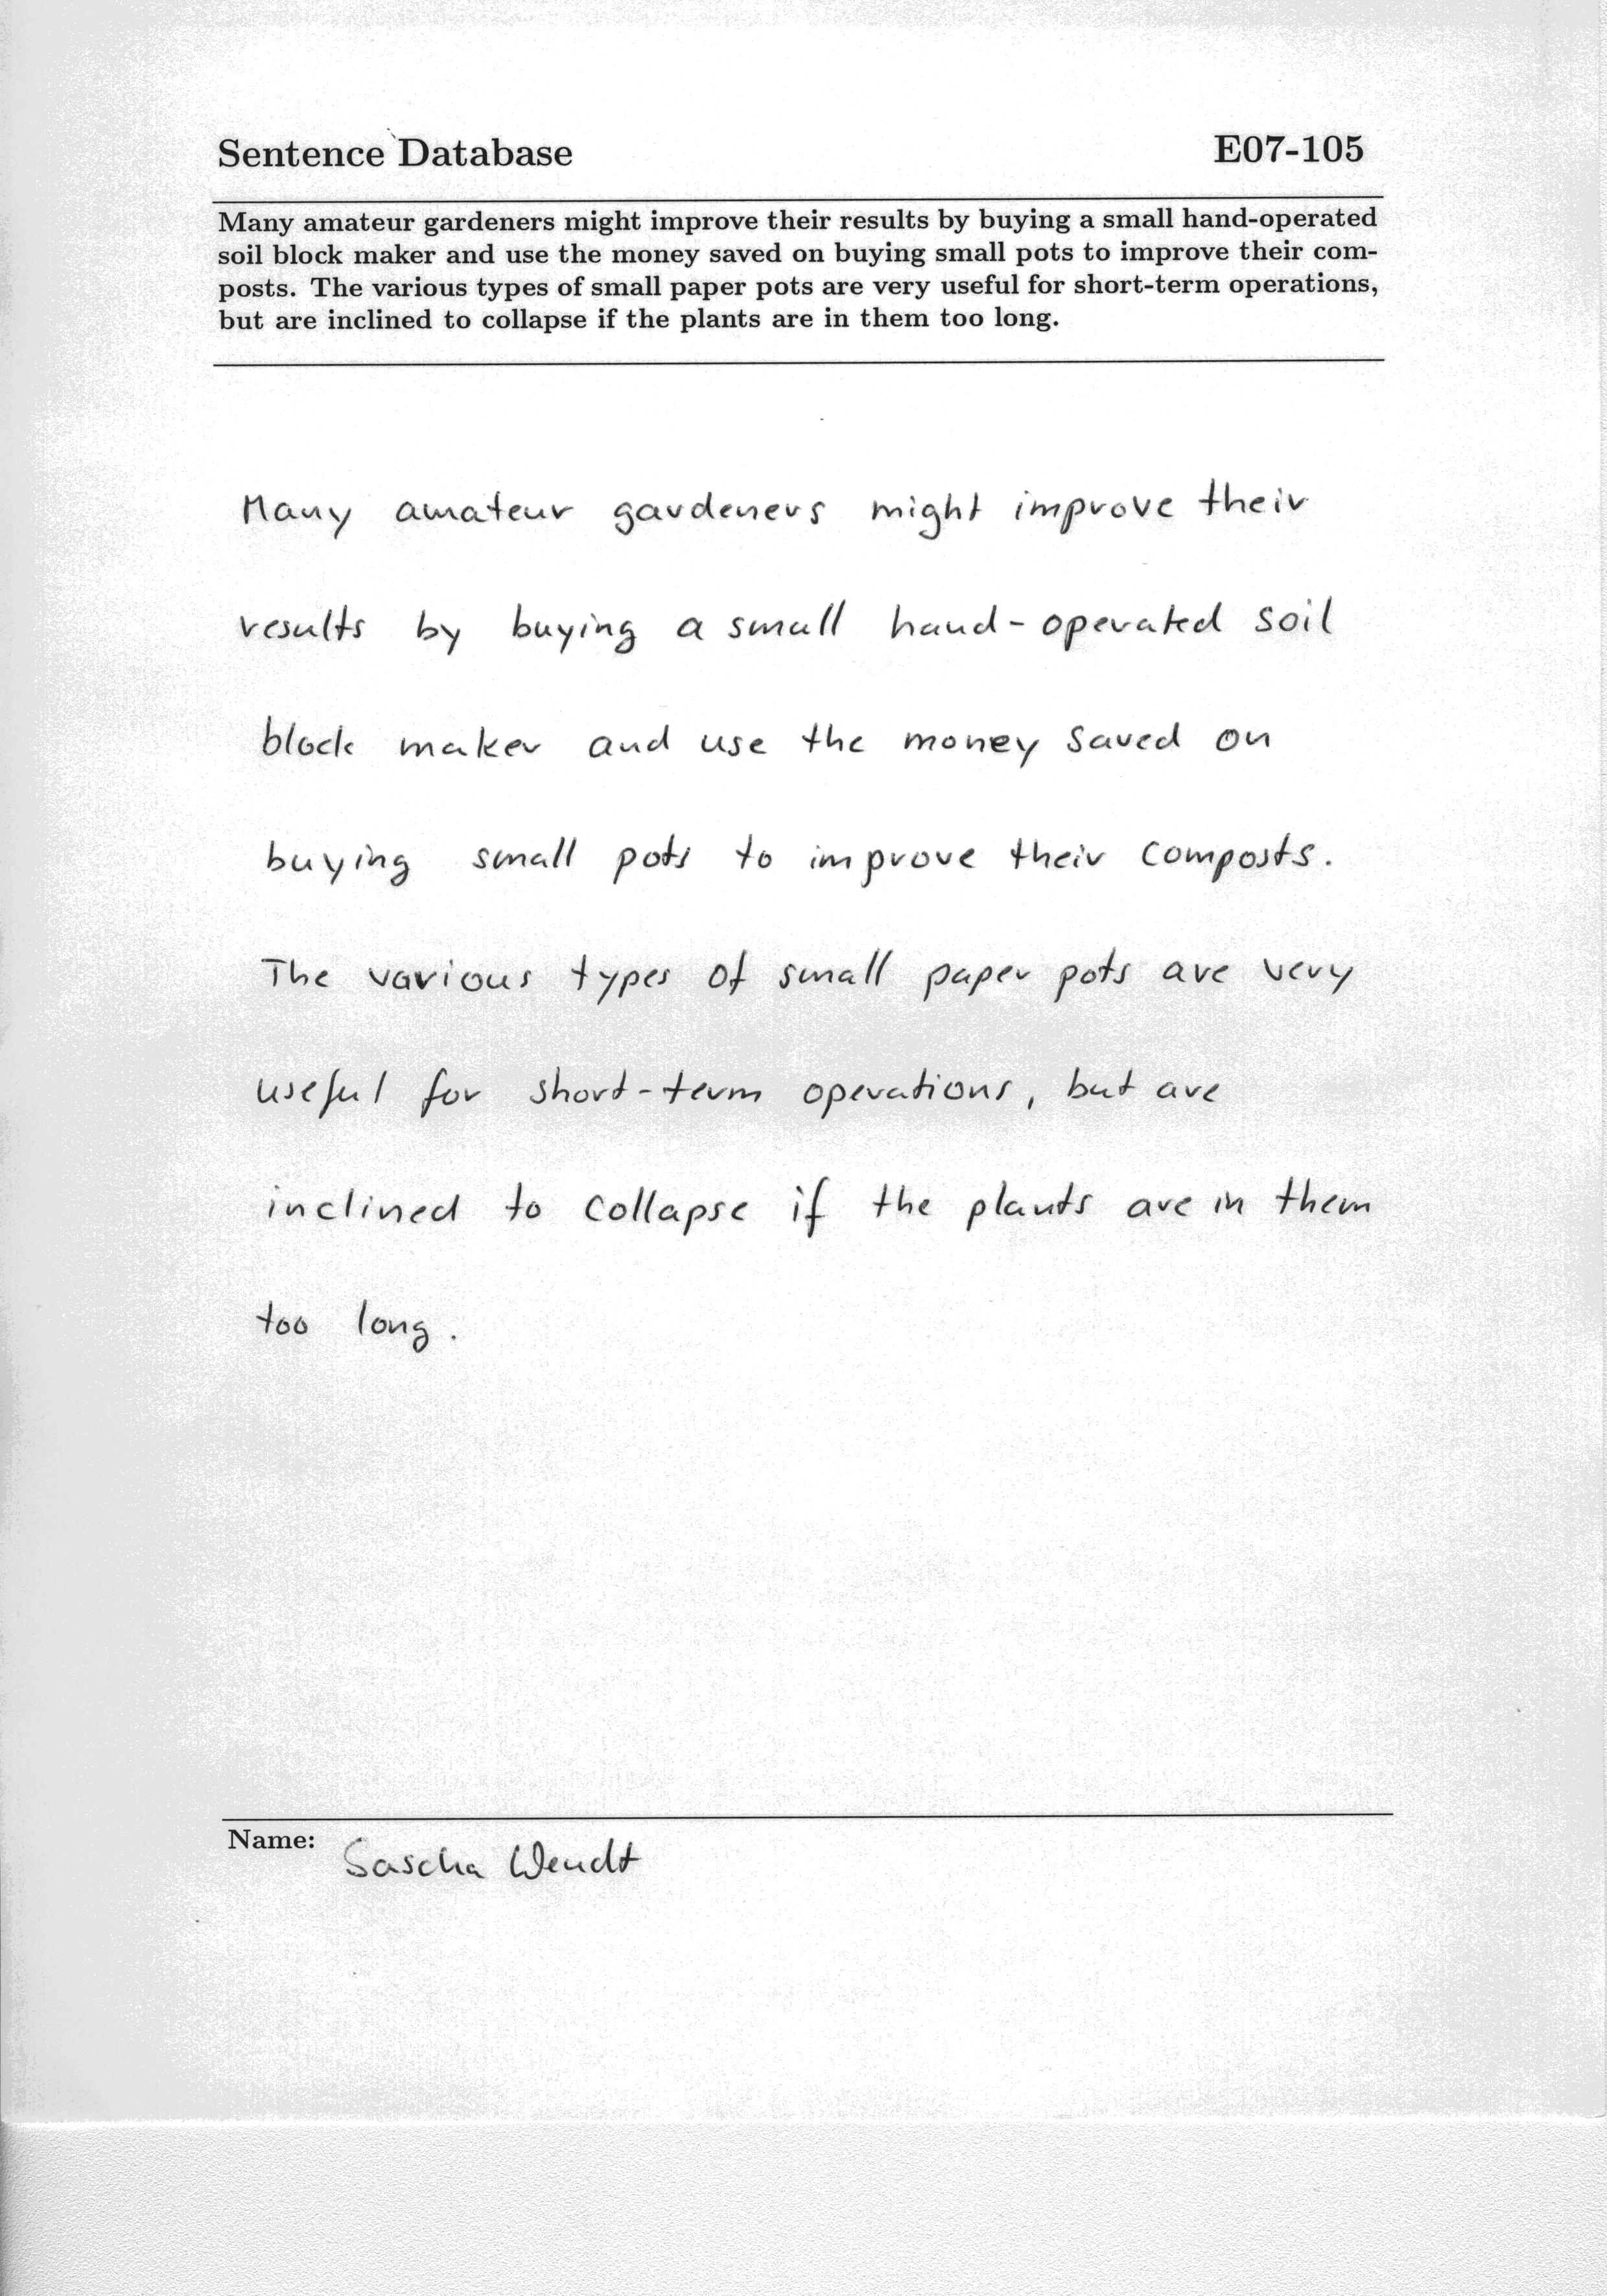 Sentence Database E07-105
Many amateur gardeners might improve their results by buying a small hand-operated
soil block maker and use the money saved on buying small pots to improve their com-
posts. The various types of small paper pots are very useful for short-term operations,
but are inclined to collapse if the plants are in them too long.
Many amateur gardeners might improve their
results by buying a small hand-operated soil
block maker and use the money saved on
buying small pots to improve their composts.
The various types of small paper pots are very
useful for short-term operations, but are
inclined to collapse if the plants are in them
too long.
Name: Sascha Wendt